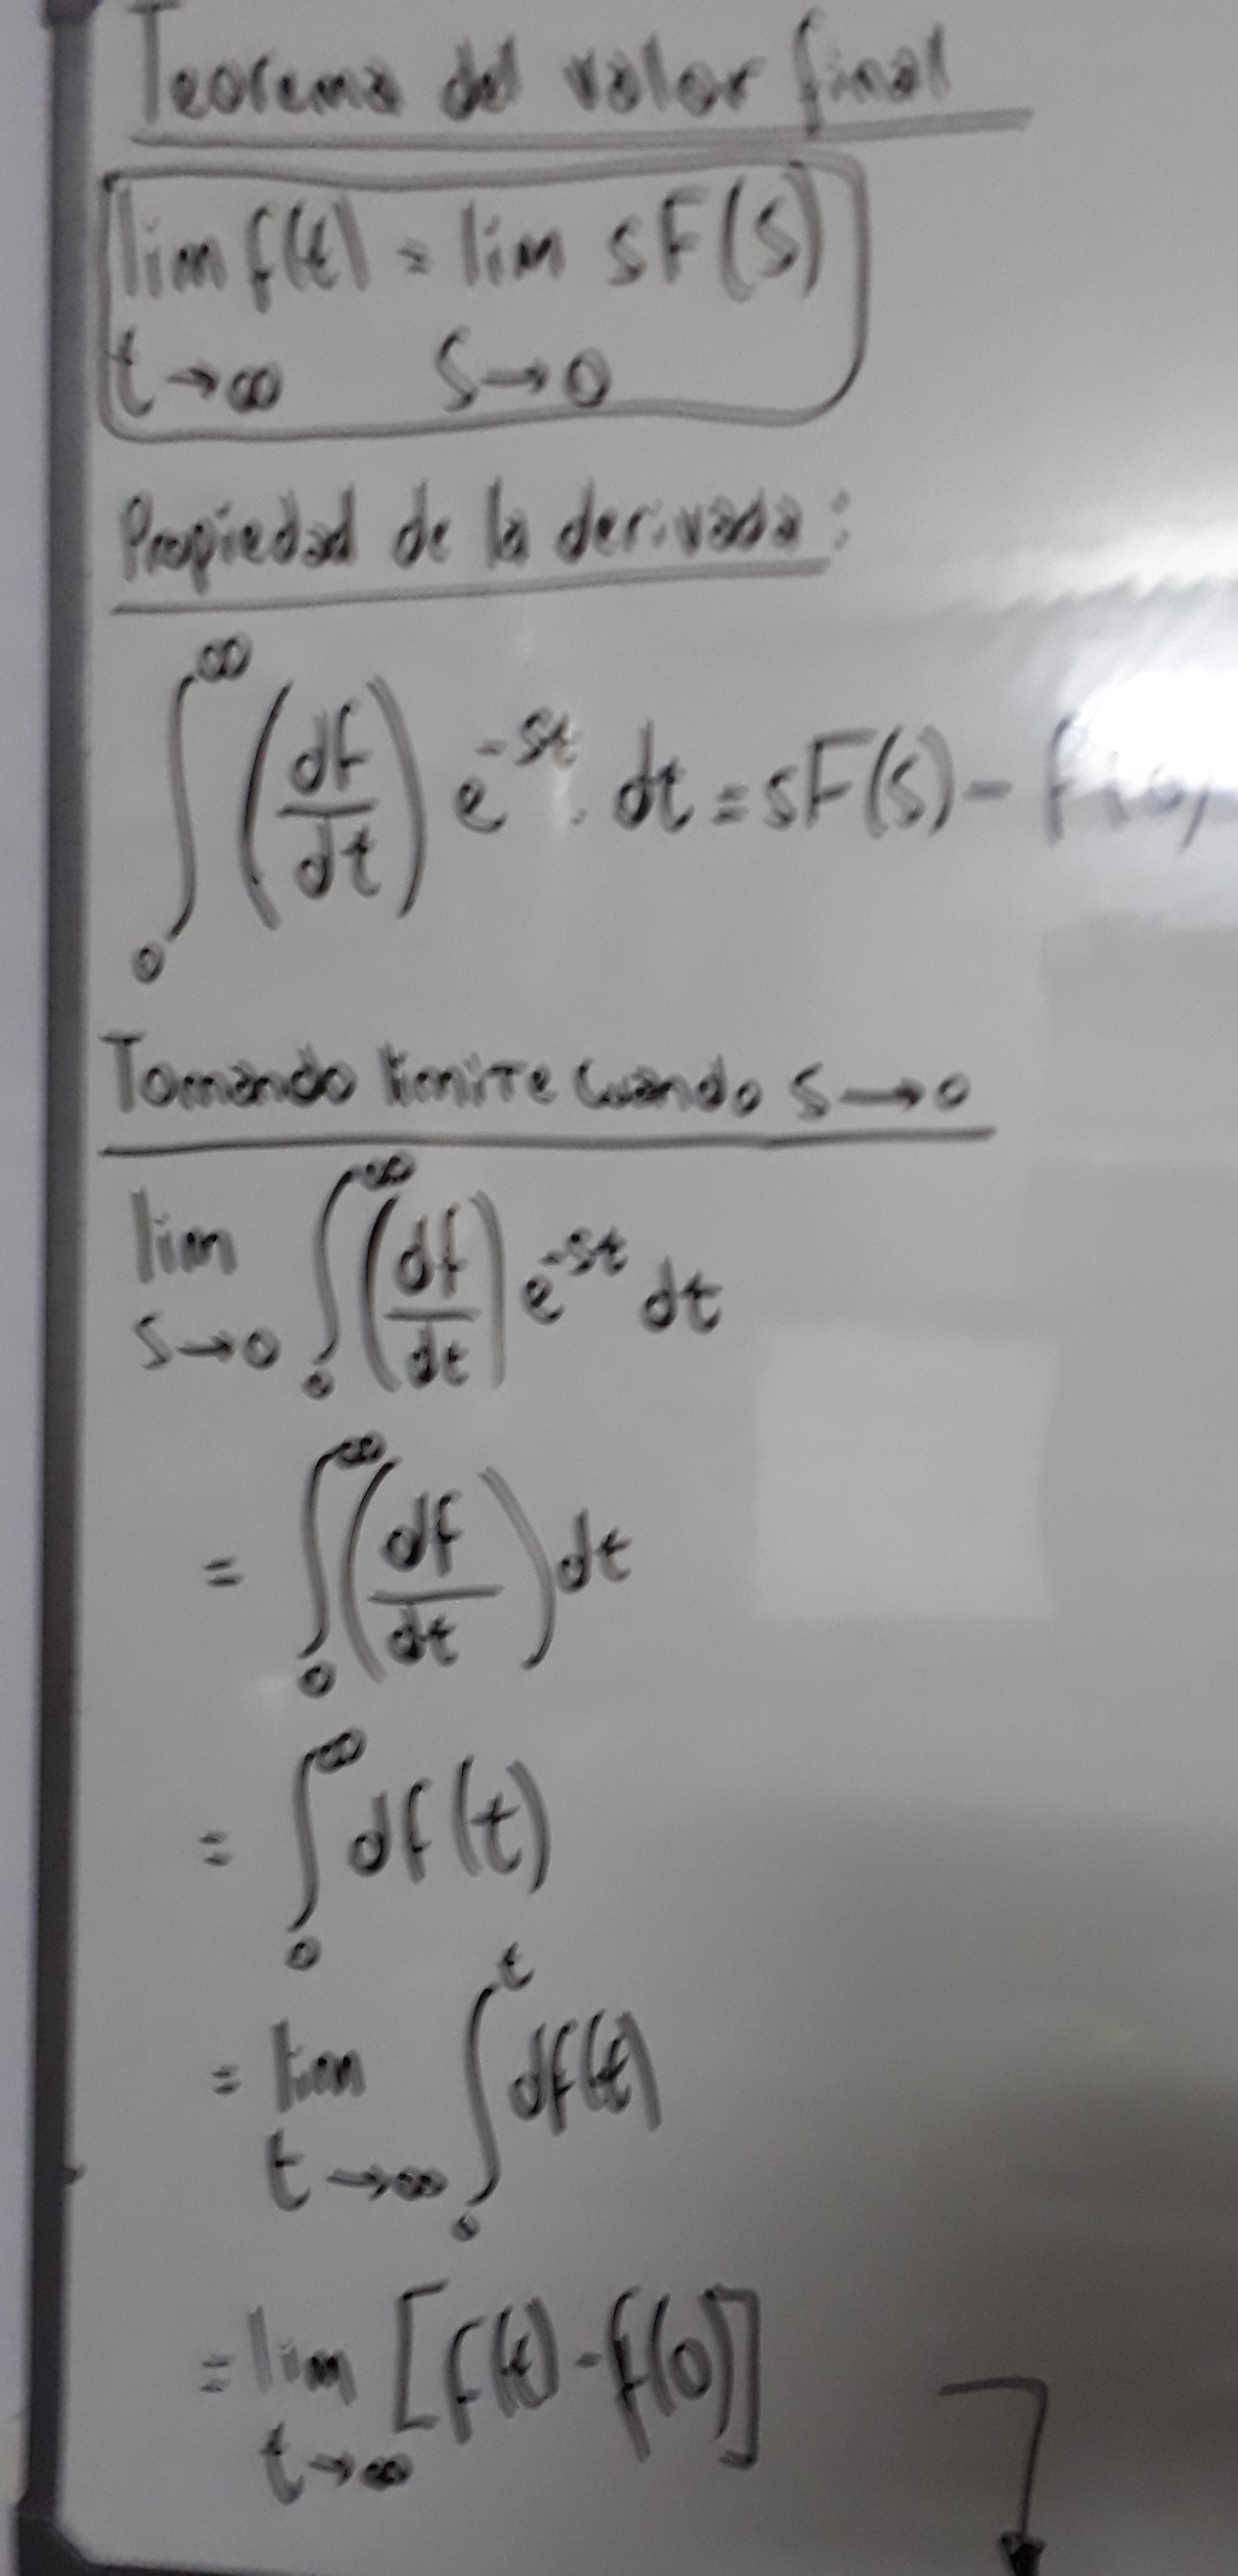 Teorema del valor final
lim f(t) = lim sF(s)
t→∞ s→0
Propiedad de la derivada:
∫₀^∞ (df/dt) e^-st . dt = sF(s) - f(0)
Tomando limite cuando s→0
lim s→0 ∫₀^∞ (df/dt) e^-st dt
= ∫₀^∞ (df/dt) dt
= ∫₀^∞ df(t)
= lim t→∞ ∫₀^t df(t)
= lim t→∞ [f(t) - f(0)]